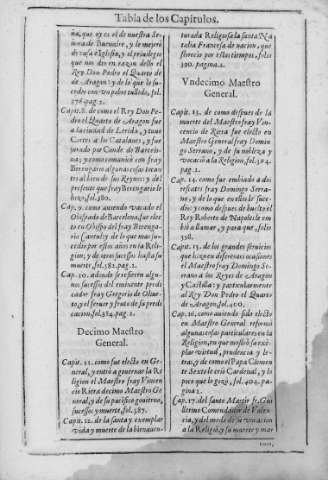 Tabla de los Capitulos.
ña, que oy es el de nuestra Se-
ñora de Barnuire, y se mejorò
de casa è Iglesia, y el priuilegio
que nos dio en razon dello el
Rey Don Pedro el Quarto de
de Aragon y de lo que le su-
cedio con un pobre tullido, fol.
376. pag. 2.
Capit. 8. de como el Rey Don Pe-
dro el Quarto de Aragon fue
a la ciudad de Lerida, y tuuo
Cortes a los Catalanes, y fue
jurado por Conde de Barcelo-
na; y como comunicò con fray
Berengario algunas cosas tocan
tes al bien de sus Reynos; y del
presente que fray Berengario le
hizo, fol. 380.
Cap. 9. como auiendo vacado el
Obispado de Barcelona, fue elec
to en Obispo del fray Berenga-
rio Cantul; y de lo que mas suce-
dio por estos años en la Reli-
gion; y de otros sucessos hasta su
muerte, fol. 382. pag. 2.
Cap. 10. adonde se refieren algu-
nos sucessos del eminente predi-
cador fray Gregorio de Oliue-
to, y el feruor y fruto de su predi
cacion, fol. 384. pag. 2.
Decimo Maestro
General.
Capit. 11. como fue electo en Ge-
neral, y entrò a gouernar la Re
ligion el Maestro fray Vincen
cio Riera decimo Maestro Ge-
neral, y de su pacifico gouierno,
sucessos y muerte, fol. 387.
Capit. 12. de la santa y exemplar
vida y muerte de la bienauen-
turada Religiosa la santa Na-
talia Francesa de nacion, que
florecio por estos tiempos, folio
390. pagina 2.
Vndecimo Maestro
General.
Capit. 13. de como despues de la
muerte del Maestro fray Vin-
cencio de Riera fue electo en
Maestro General fray Domin
go Serrano, y de su nobleza y
vocaciò a la Religion, fol. 394.
pag. 2.
Cap. 14. como fue embiado a dos
rescates fray Domingo Serra-
no; y de lo que en ellos le suce-
dio; y como despues de buelto el
Rey Roberto de Napoles le em
biò a llamar, y para que, folio
398.
Capit. 15. de los grandes seruicios
que hizo en diferentes ocasiones
el Maestro fray Domingo Se-
rrano a los Reyes de Aragon
y Castilla: y particularmente
al Rey Don Pedro el Quarto
de Aragon, fol. 400.
Cap. 16. como auiendo sido electo
en Maestro General reformò
algunas cosas particulares en la
Religion, en que mostrò su exẽ
plar virtud, prudencia y le-
tras; y de como el Papa Clemen
te Sexto le criò Cardenal, y lo
poco que lo gozò, fol. 404. pa-
gina 2.
Cap. 17. del santo Martir fr. Gui
llermo Comendador de Valen-
cia, y del modo de su vocacion
a la Religiõ, y su muerte y mar